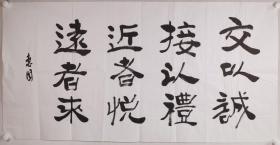 交以誠
接以禮
近者悅
遠者來